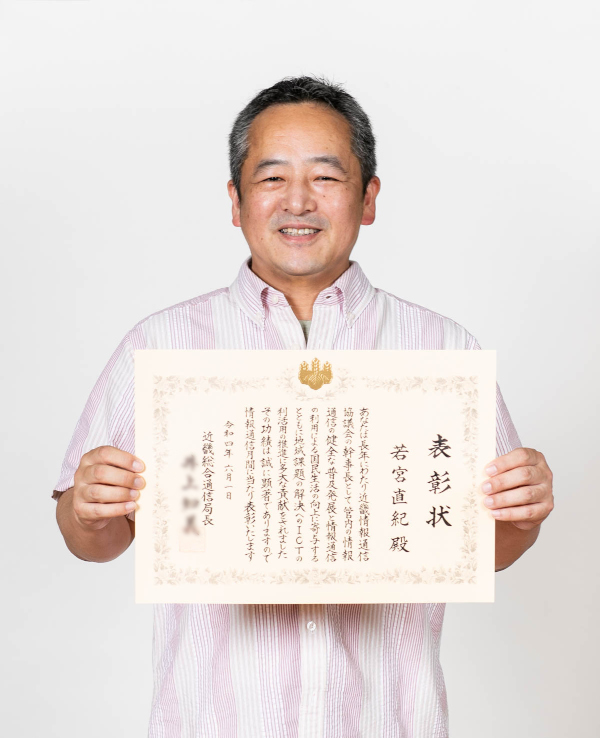 表彰状
若宮直紀 殿
あなたは長年にわたり近畿情報通信
協議会の幹事長として管内の情報
通信の健全な普及発展と情報通信
の利用による国民生活の向上に寄与する
とともに地域課題の解決へのICTの
利活用の推進に多大な貢献をされました
その功績は誠に顕著でありますので
情報通信月間に当たり表彰いたします
令和四年六月一日
近畿総合通信局長